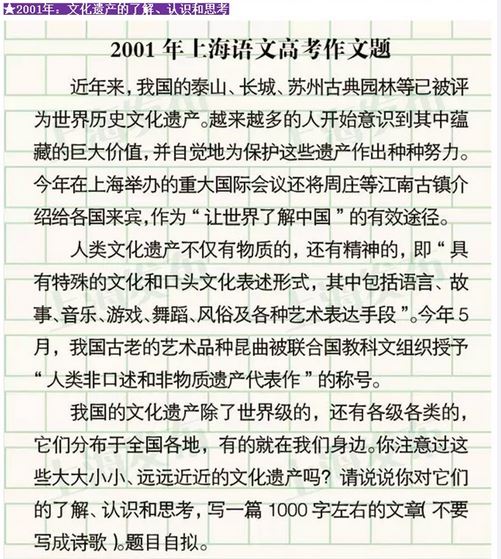 ★2001年：文化遗产的了解、认识和思考
2001 年上海语文高考作文题
近年来，我国的泰山、长城、苏州古典园林等已被评
为世界历史文化遗产。越来越多的人开始意识到其中蕴
藏的巨大价值，并自觉地为保护这些遗产作出种种努力。
今年在上海举办的重大国际会议还将周庄等江南古镇介
绍给各国来宾，作为“让世界了解中国”的有效途径。
人类文化遗产不仅有物质的，还有精神的，即“具
有特殊的文化和口头文化表述形式，其中包括语言、故
事、音乐、游戏、舞蹈、风俗及各种艺术表达手段”。今年 5
月，我国古老的艺术品种昆曲被联合国教科文组织授予
“人类非口述和非物质遗产代表作”的称号。
我国的文化遗产除了世界级的，还有各级各类的，
它们分布于全国各地，有的就在我们身边。你注意过这
些大大小小、远远近近的文化遗产吗？请说说你对它们
的了解、认识和思考，写一篇 1000 字左右的文章（不要
写成诗歌）。题目自拟。